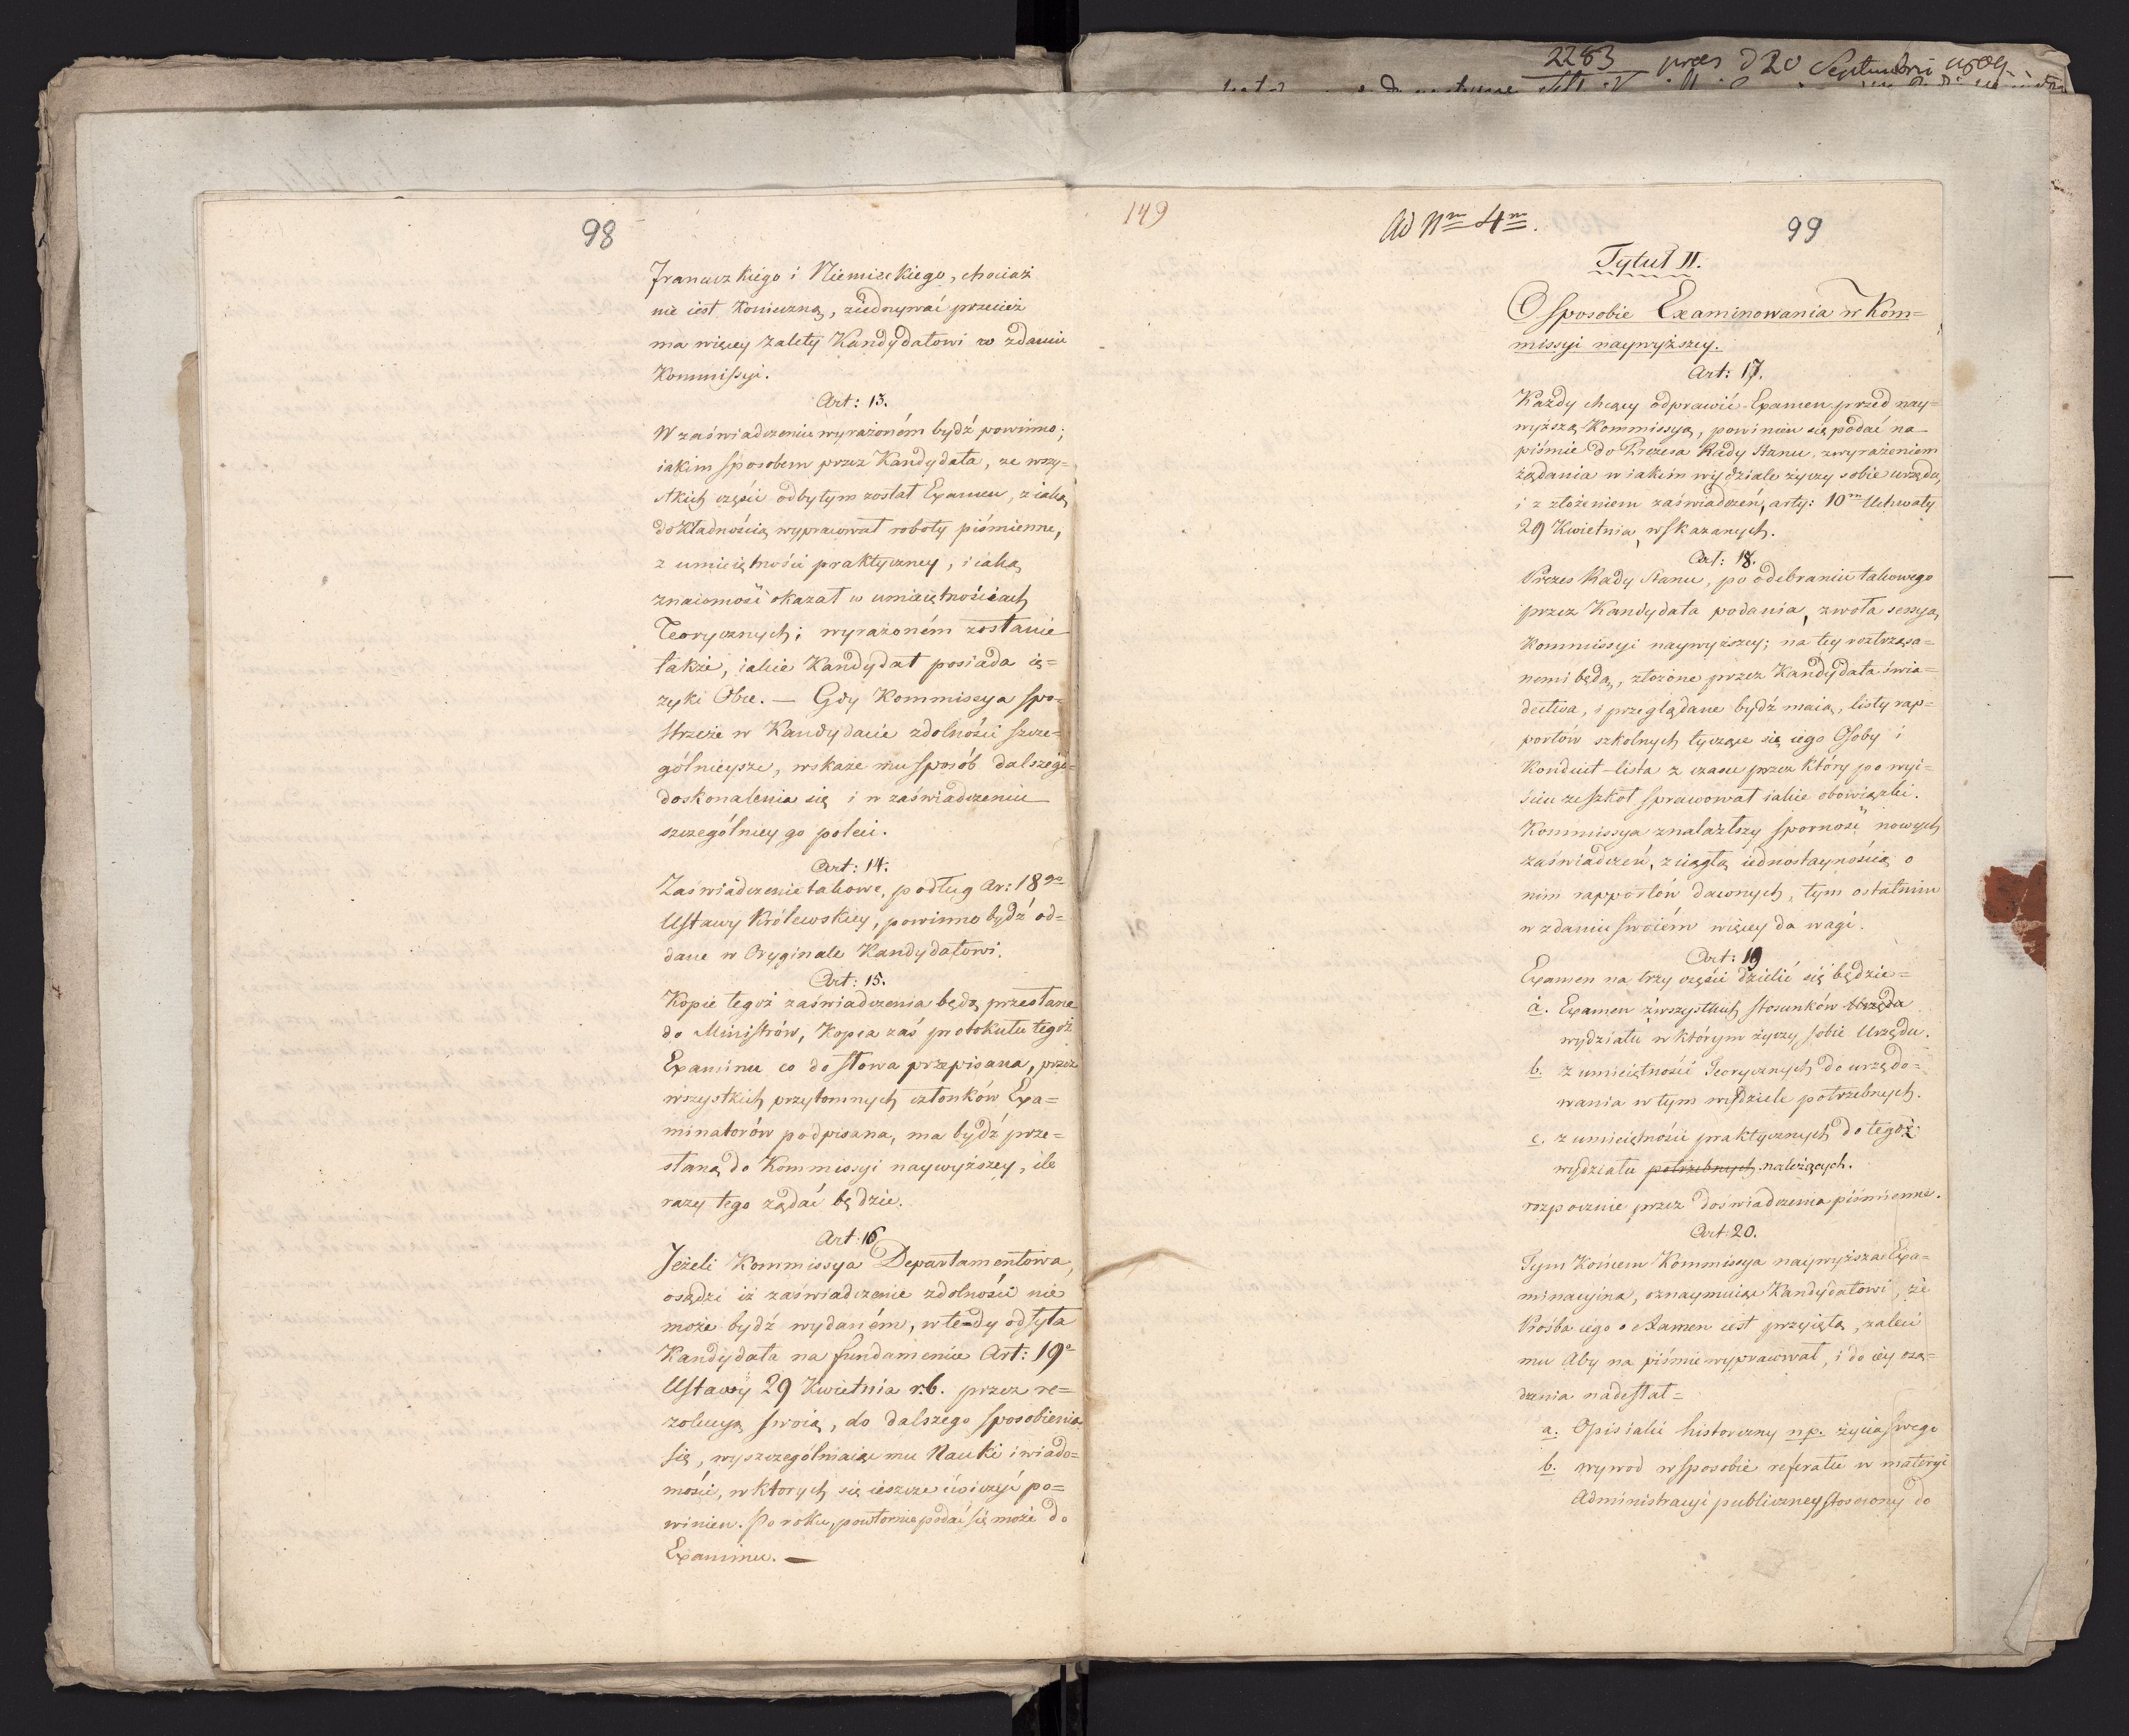 2283 præs d 20 Septembri
98
Francuzkiego i Niemieckiego, chociaż
nie iest konieczną, ziednywać przecież
ma więcey zalety Kandydatowi w zdaniu
Kommissyi.
Art: 13.
W zaświadczeniu wyrażoném bydź powinno;
iakim sposobem przez Kandydata, ze wszy=
stkich części odbytym został Examen, z iaką
dokładnością wypracował roboty piśmienne,
z umieiętności praktyczney, i iaką
znaiomość okazał w umieiętnościach
Teorycznych; wyrażoném zostanie
także, iakie Kandydat posiada ię=
zyki Obce. — Gdy Kommissya spo=
strzeże w Kandydacie zdolności szcze=
gólnieysze, wskaże mu sposób dalszego
doskonalenia się i w zaświadczeniu
szczególniey go poleci.
Art: 14.
Zaświadczenie takowe, podług Ar: 18go
Ustawy Królewskiey, powinno bydź od=
dane w Oryginale Kandydatowi.
Art: 15.
Kopie tegoż zaświadczenia będą przesłane
do Ministrów, Kopia zaś protokułu tegoż
Examinu co do słowa przepisana, przez
wszystkich przytomnych członków Exa=
minatorów podpisana, ma bydź prze=
słaną do Kommissyi naywyższey, ile
razy tego żądać będzie.
Art: 16
Jeżeli Kommissya Departamentowa,
osądzi iż zaświadczenie zdolności nie
może bydź wydaném, wtedy odsyła
Kandydata na fundamencie Art: 19o
Ustawy 29 Kwietnia r.b. przez re=
zolucyą swoią, do dalszego sposobienia
się, wyszczególniaiąc mu Nauki i wiado=
mości, w których się ieszcze ćwiczyć po=
winien. Po roku, powtórnie podać się może do
Examinu. —
149
Ad Nrm 4m.
99
Tytuł II.
O sposobie Examinowania w Kom=
missyi naywyższey.
Art: 17.
Każdy chcący odprawić Examen przed nay=
wyższą Kommissyą, powinien się podać na
piśmie do Prezesa Rady Stanu, z wyrażeniem
żądania w iakim wydziale życzy sobie urzędu,
i z złożeniem zaświadczeń, arty: 10m Uchwały
29 Kwietnia, wskazanych.
Art: 18.
Prezes Rady Stanu, po odebraniu takowego
przez Kandydata podania, zwoła sessyą
Kommissyi naywyższey; na tey roztrząsa=
nemi będą, złożone przez Kandydata świa=
dectwa, i przeglądane bydź maią, listy rap=
portów szkolnych tyczące się iego Osoby i
Konduit-lista z czasu przez który po wyi=
ściu ze szkoł sprawował iakie obowiązki.
Kommissya znalazłszy sporność nowych
zaświadczeń, z ciągłą iednostaynością o
nim rapportów dawnych, tym ostatnim
w zdaniu swoiém więcey da wagi.
Art: 19
Examen na trzy części dzielić się będzie=
a. Examen z wszystkich stosunków Urzędu
wydziału w którym życzy sobie Urzędu.
b. z umieiętności Teorycznych do urzędo=
wania w tym wydziele potrzebnych.
c. z umieiętności praktycznych do tegoż
wydziału potrzebnych należących.
rozpocznie przez doświadczenia piśmienne.
Art: 20.
Tym końcem Kommissya naywyższa Exa=
minacyina, oznaymuiąc Kandydatowi, że
Prośba iego o Examen iest przyięta, zaleci
mu Aby na piśmie wypracował, i do iey osą=
dzenia nadesłał=
a. Opis iaki historyczny np. życia swego
b. wywod w sposobie referatu w materyi
Administracyi publiczney stosowny do